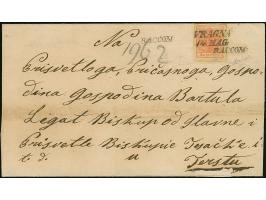 Na
RACCOM
1962
VRAGNA
14 MAG
RACCOM
Prisvetloga, Pričasnoga, Gospo-
dina Gospodina Bartula
Legat Biskup od Slavne i
Prisvetle Biskupie Tvačk'e i
t d. u
Terstu